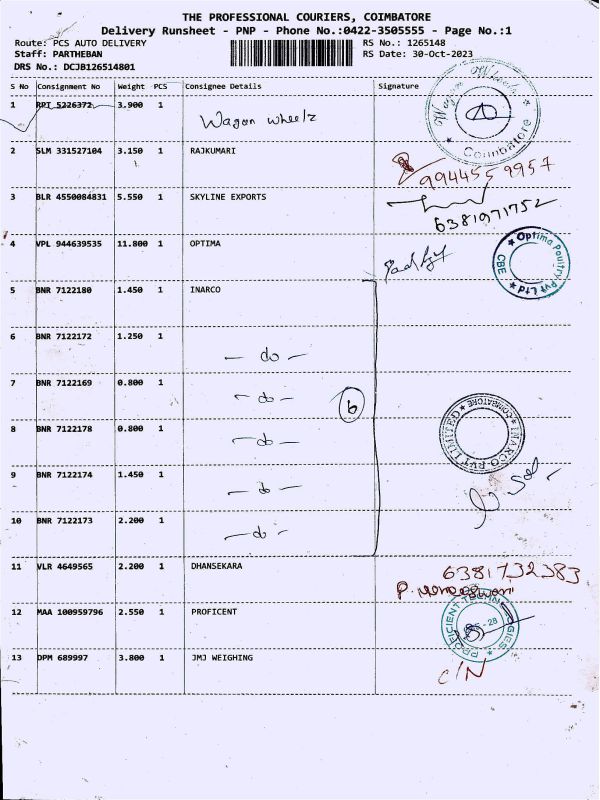 THE PROFESSIONAL COURIERS, COIMBATORE
Delivery Runsheet - PNP - Phone No.:0422-3505555 - Page No.:1
Route: PCS AUTO DELIVERY RS No.: 1265148
Staff: PARTHEBAN RS Date: 30-Oct-2023
DRS No.: DCJB126514801
S No Consignment No Weight PCS Consignee Details Signature
1 RPI 5226372 3.900 1 Wagon wheelz
Wagon Wheels Coimbatore
2 SLM 331527104 3.150 1 RAJKUMARI
9944559957
3 BLR 4550084831 5.550 1 SKYLINE EXPORTS
6381971752
4 VPL 944639535 11.800 1 OPTIMA
Optima Poultry Pvt Ltd CBE
5 BNR 7122180 1.450 1 INARCO
6 BNR 7122172 1.250 1 - do -
7 BNR 7122169 0.800 1 - do - 6
8 BNR 7122178 0.800 1 - do -
INARCO PVT LIMITED COIMBATORE
9 BNR 7122174 1.450 1 - do -
10 BNR 7122173 2.200 1 - do -
11 VLR 4649565 2.200 1 DHANSEKARA 6381732383
12 MAA 100959796 2.550 1 PROFICENT
13 DPM 689997 3.800 1 JMJ WEIGHING C/N